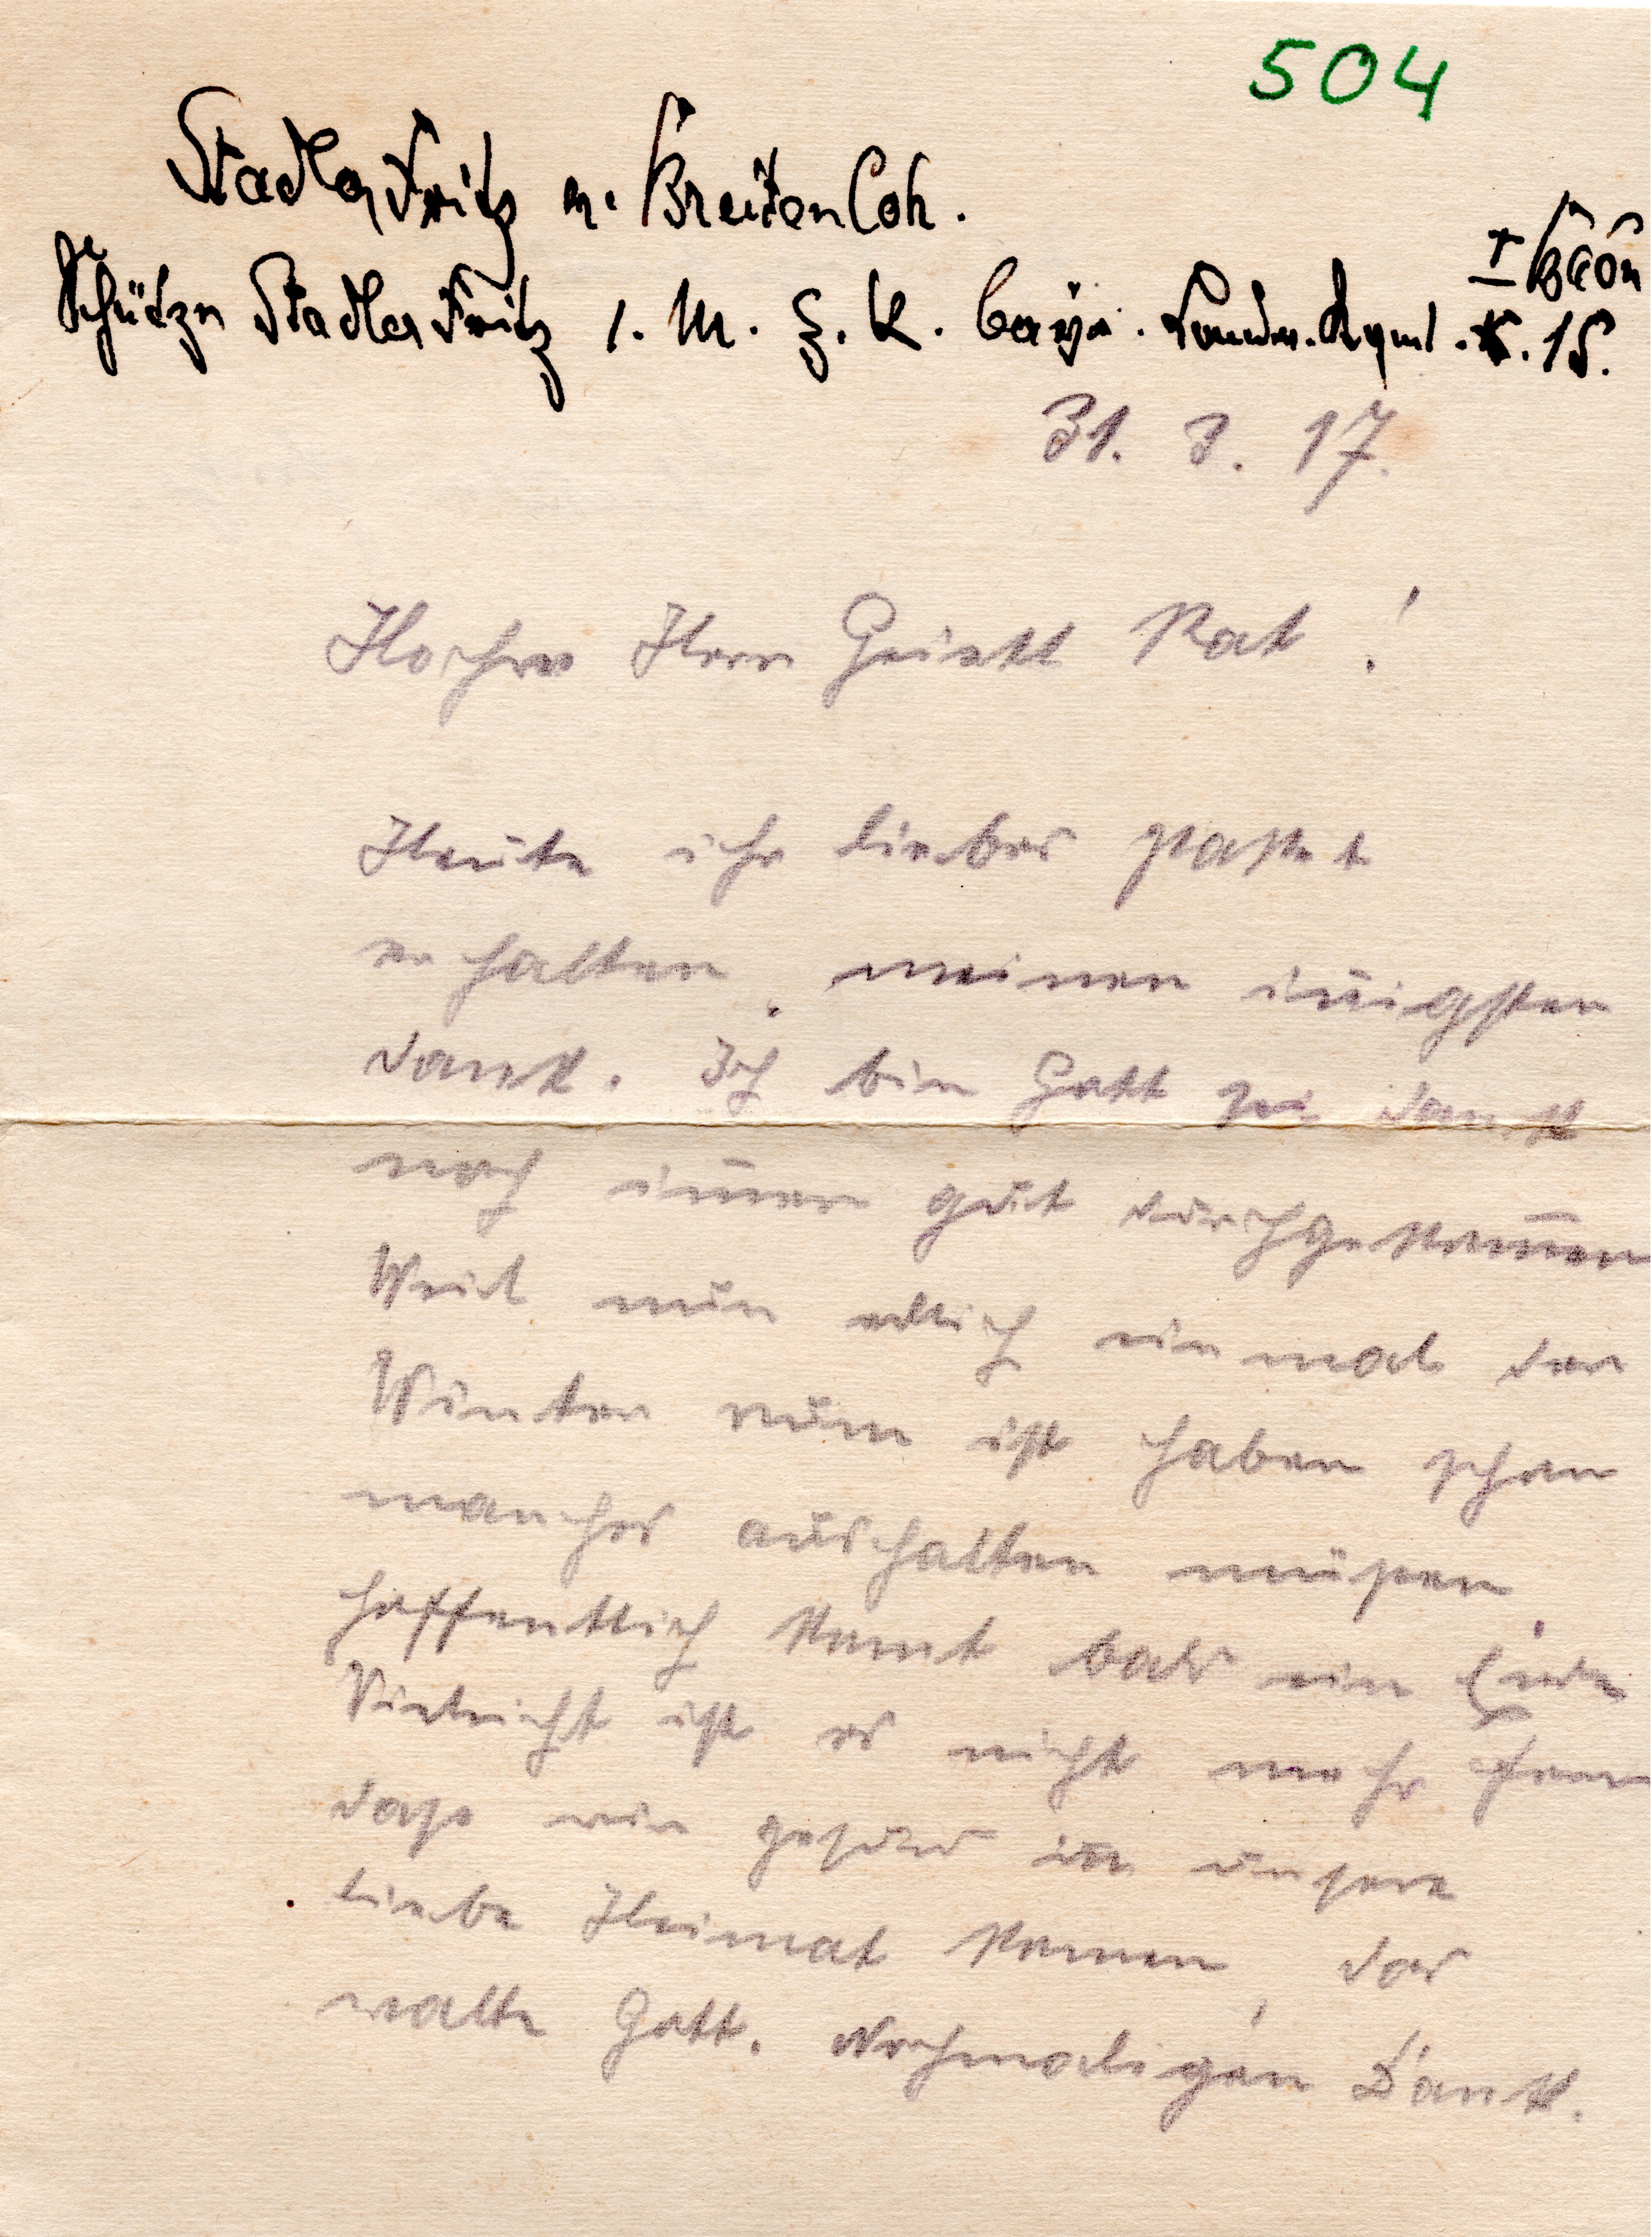 504
Stadler Fritz v. Breitenloh.
I Baon
Schütze Stadler Fritz 1. M. G. K. bayr. Landw. Rgmt. 15.
31. 3. 17.
Hochw Herr Geistl Rat!
Heute ihr liebes packet
erhalten, meinen innigsten
dank. Ich bin Gott sei dank
noch imer gut durchgekomen
Weil nun edlich einmal der
Winter rum ist haben schon
manches aushalten müßen,
hoffentlich komt bald ein Ende
Vieleicht ist es nicht mehr fern
daß wir gesund in unsere
liebe Heimat komen, das
walte Gott. Nochmaligen Dank.